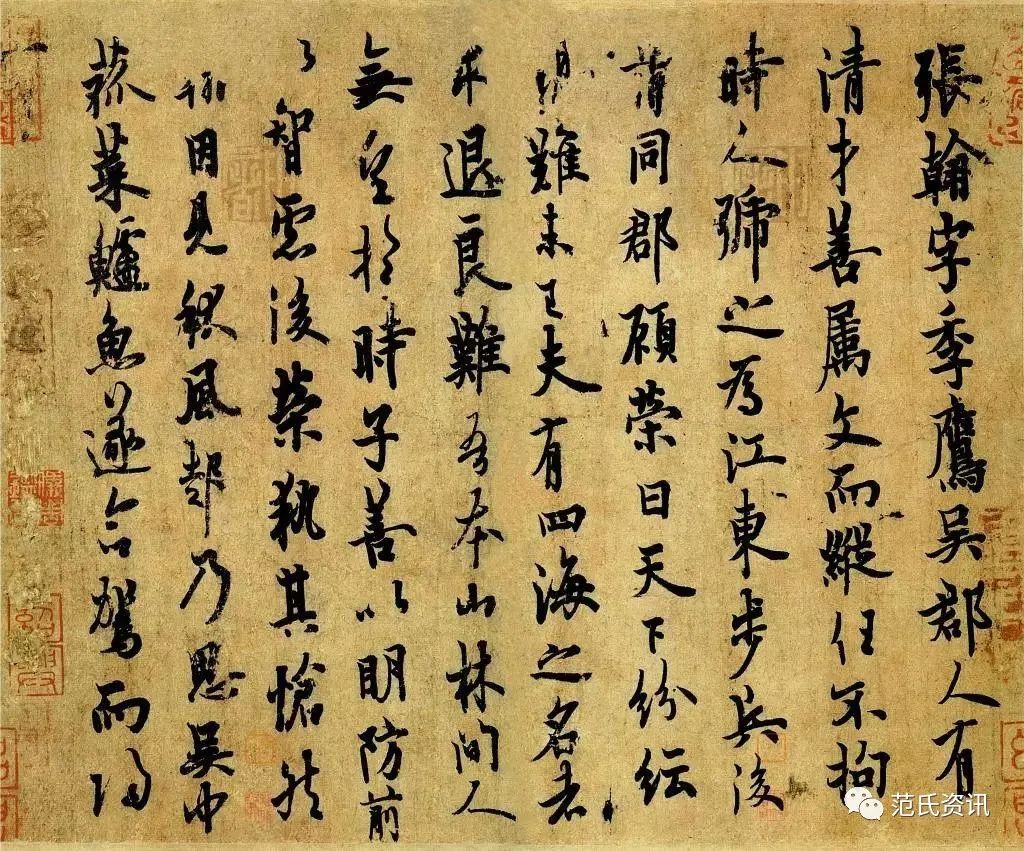 張翰字季鷹吳郡人有
清才善屬文而縱任不拘
時人號之為江東步兵後
謂同郡顧榮曰天下紛紜
難未已夫有四海之名者
求退良難吾本山林間人
無望於時子善以明防前
以智慮後榮執其愴然
翰因見秋風起乃思吳中
菰菜鱸魚遂命駕而歸
范氏资讯